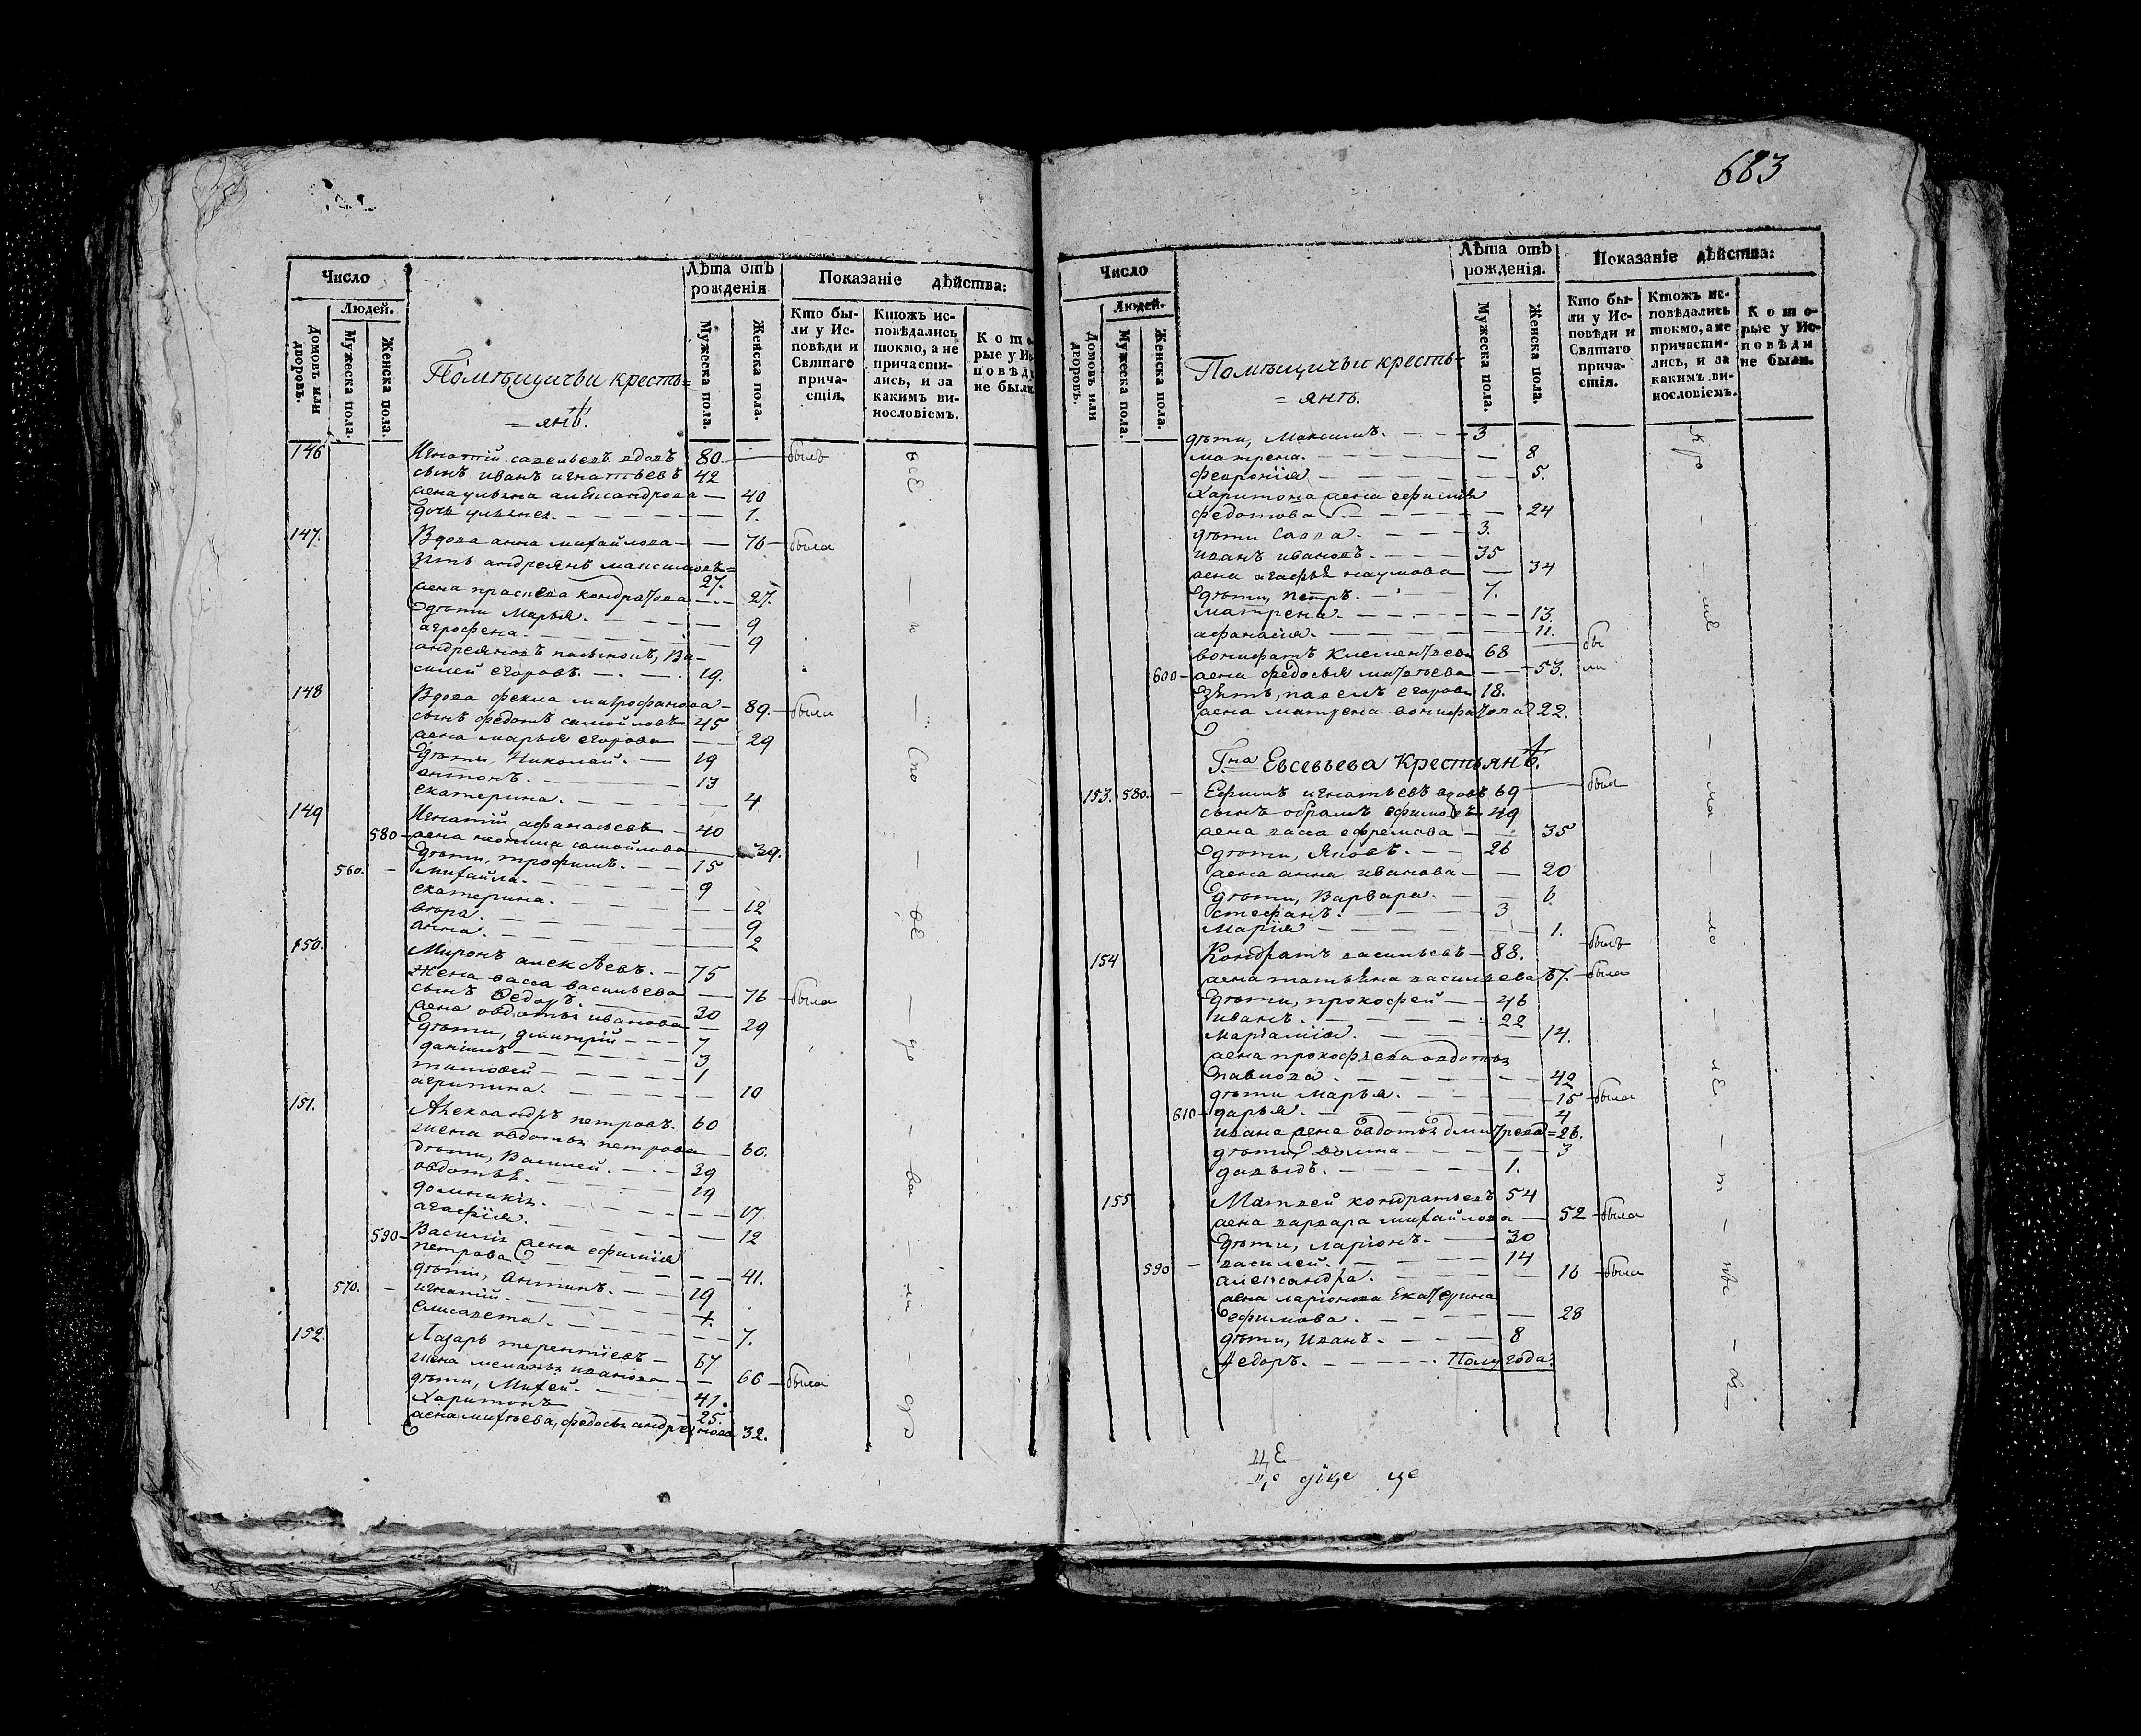 683
Число
Людей.
Домовъ или дворовъ.
Мужеска пола.
Женска пола.
Помѣщичьи кресть=
=янѣ.
Лѣта отъ рожденія
Мужеска пола.
Женска пола.
Показаніе дѣйства:
Кто бы-
ли у Ис-
повѣди и
Святаго
прича-
стія.
Ктожъ ис-
повѣдались
токмо, а не
причасти-
лись, и за
какимъ ви-
нословіемъ.
К о т о
рые у Ис
п о в ѣ д
не были
146 Игнатій савельевъ вдовъ 80. былъ
сынъ иванъ игнатьевъ 42
жена ульяна александрова — 40
дочь ульянея. — 1.
147. Вдова анна михайлова — 76 — была
Зять андреянъ максимовъ=
27.
жена прасковѧ кондратова — 27.
дѣти Марья. — 9
агрофена. — 9
андреяновъ пасынокъ, Ва-
силей егоровъ. — 19.
148 Вдова фекла митрофанова — 89. — была
сынъ федотъ самойловъ 45
жена марья егорова — 29
дѣти, Николай. — 19
антонъ. — 13
екатерина. — 4
149 Игнатій афанасьевъ — 40
580 — жена неонила самойлова 39.
дѣти, трофимъ. — 15
560. — михайла. — 9
екатерина. — 12
вѣра. — 9
анна. — 2
150. Миронъ алексѣевъ. — 75
жена васса васильева — 76 — была
сынъ Ѳедоръ. — 30
жена овдотья иванова — 29
дѣти, дмитрій — 7
даніилъ — 3
тимоѳей — 1
агрипина. — 10
151. Александръ петровъ. 60
жена овдотья петрова — 60.
дѣти, Василей. — 39
овдотья. — 19
домникія. — 17
агафія. — 12
590 — Василія жена ефимія
петрова — 41.
дѣти, Антипъ. — 19
570. — игнатій. —
елисавета. — 7.
152. Лазарь терентіевъ — 67
жена меланья иванова — 66 — была
дѣти, Михей. — 41.
Харитонъ — 25.
жена михѣева, федосья андреянова 32.
всѣ — и — спо — вѣ — до — ва — ни — до
Число
Людей.
Домовъ или дворовъ.
Мужеска пола.
Женска пола.
Помѣщичьи кресть-
= янъ.
Лѣта отъ рожденія.
Мужеска пола.
Женска пола.
Показаніе дѣйства:
Кто бы-
ли у Ис-
повѣди и
Святаго
прича-
стія.
Ктожъ ис-
повѣдались
токмо, а не
причасти-
лись, и за
какимъ ви-
нословіемъ.
К о т о-
рые у Ис-
п о в ѣ д и
не были.
дѣти, Максимъ. — 3
матрена. — 8
февронія — 5.
Харитона жена ефимія
федотова — 24
дѣти Савва. — 3.
иванъ ивановъ. — 35
жена агафья наумова — 34
дѣти, петръ. — 7.
матрена. — 13.
афанасия. — 11.
вонифатъ клементьевъ 68 — бы
600 — жена федосья матвѣева — 53. ли
Зять, павелъ егоровъ 18.
жена матрена вонифатова 22.
Гна Евсевьева Крестьянѣ.
153. 580. — Ефимъ игнатьевъ вдовъ 69 — былъ
сынъ обрамъ ефимовъ 49
жена васса ефремова — 35
дѣти, Яковъ. — 26
жена анна иванова — 20
дѣти, Варвара. — 6.
стефанъ. — 3
Марія — 1.
154 Кондратъ васильевъ — 88. былъ
жена татьяна васильева 67. — была
дѣти, прокофей — 46
иванъ. — 22
маріамія. — 14.
жена прокофьева овдотья
павлова. — 42
дѣти Марья. — 15 — была
610 — дарья. — 4
ивана жена овдотья дмитрева = 26.
дѣти, домна — 3
давыдъ. — 1.
155 Матвей кондратьевъ 54
жена варвара михайлова — 52 — была
дѣти, ларіонъ. — 30
590 — василей. — 14
александра. — 16 — была
жена ларіонова Екатерина
ефимова. — 28
дѣти, Иванъ. — 8
Федоръ. — Полугода.
ма — ло — лѣ — т
цѣ